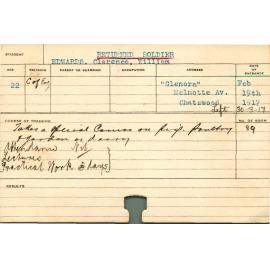 RETURNED SOLDIER
STUDENT
EDWARDS, Clarence, William
AGE RELIGION PARENT OR GUARDIAN OCCUPATION ADDRESS DATE OF ENTRANCE
22 C of E "Glenora" Feb
Melnotte Av. 19th
Chatswood 1917
Left 30-3-17
COURSE OF TRAINING NO. OF ROOM
Takes a Special Course on Poultry 89
Attendance
Lectures
Practical Work 2 days
RESULTS